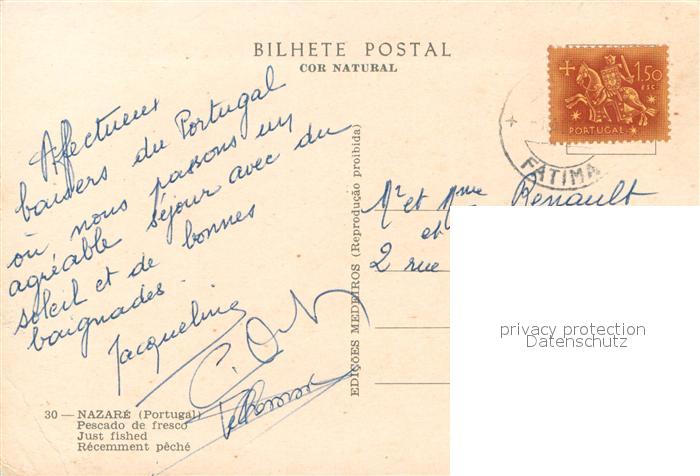 BILHETE POSTAL
COR NATURAL
1.50
ESC
PORTUGAL
FATIMA
Affectueux
baisers du Portugal
où nous passons un
agréable séjour avec du
soleil et de bonnes
baignades.
Jacqueline
EDIÇÕES MEDEIROS (Reprodução proibida)
Mr et Mme Renault
et
2 rue
privacy protection
Datenschutz
30 — NAZARÉ (Portugal)
Pescado de fresco
Just fished
Récemment pêché